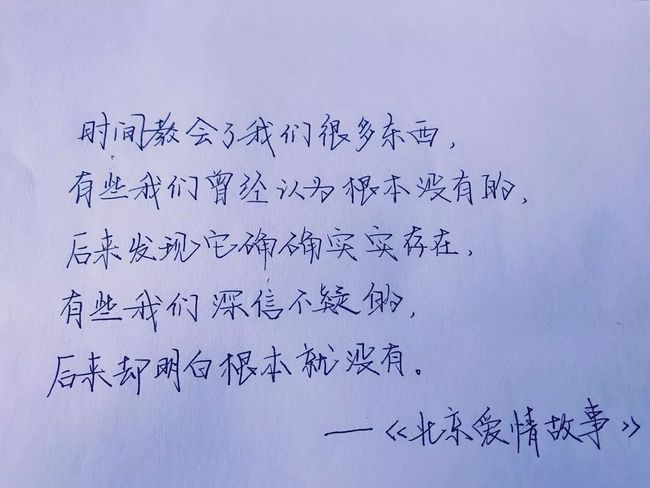 时间教会了我们很多东西，
有些我们曾经认为根本没有的，
后来发现它确确实实存在，
有些我们深信不疑的，
后来却明白根本就没有。
——《北京爱情故事》